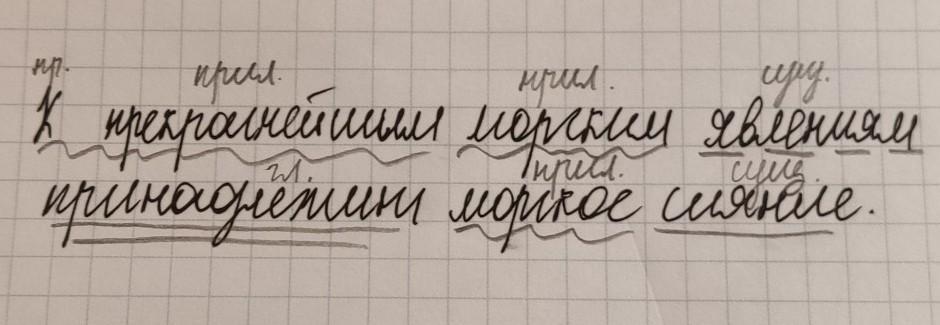 пр. прил. прил. сущ.
К прекраснейшим морским явлениям
гл. прил. сущ.
принадлежит морское сияние.